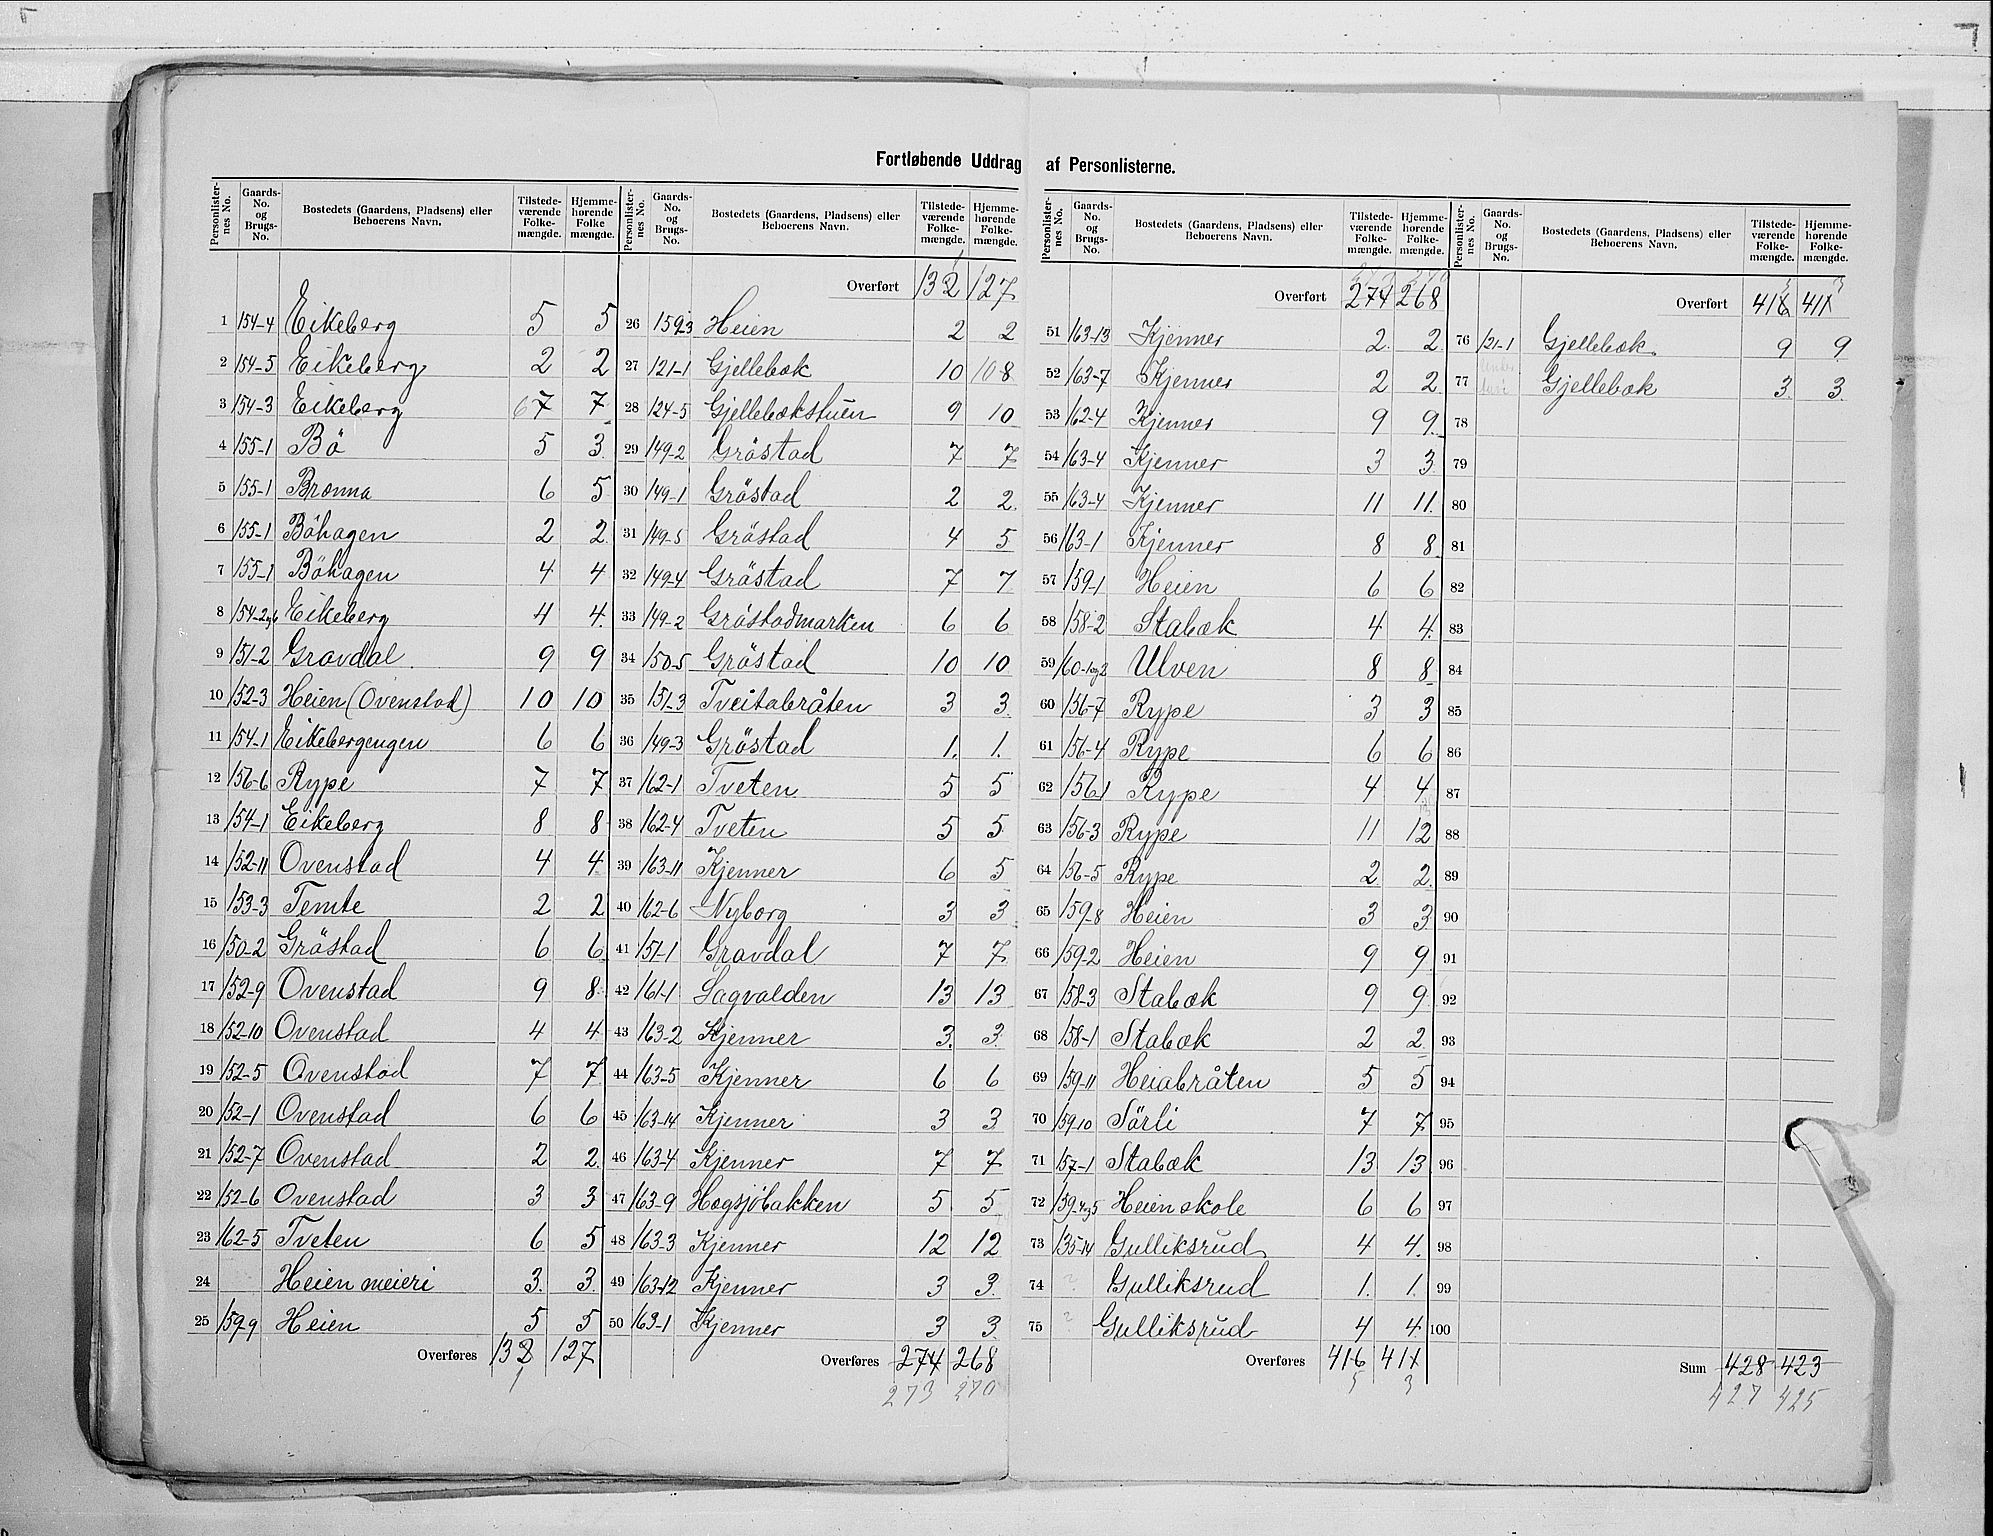 Fortløbende Uddrag af Personlisterne.
Personlisternes No. | Gaards-No. og Brugs-No. | Bostedets (Gaardens, Pladsens) eller Beboerens Navn. | Tilstedeværende Folkemængde. | Hjemmehørende Folkemængde.
1 154-4 Eikeberg 5 5
2 154-5 Eikeberg 2 2
3 154-3 Eikeberg 6 7 7
4 155-1 Bö 5 3
5 155-1 Brönna 6 5
6 155-1 Böhagen 2 2
7 155-1 Böhagen 4 4
8 154-2og6 Eikeberg 4 4
9 151-2 Gravdal 9 9
10 152-3 Heien (Ovenstad) 10 10
11 154-1 Eikebergengen 6 6
12 156-6 Rype 7 7
13 154-1 Eikeberg 8 8
14 152-11 Ovenstad 4 4
15 153-3 Temte 2 2
16 150-2 Gröstad 6 6
17 152-9 Ovenstad 9 8
18 152-10 Ovenstad 4 4
19 152-5 Ovenstad 7 7
20 152-1 Ovenstad 6 6
21 152-7 Ovenstad 2 2
22 152-6 Ovenstad 3 3
23 162-5 Tveten 6 5
24 Heien meieri 3 3
25 159-9 Heien 5 5
Overføres 132 127
1
Personlisternes No. | Gaards-No. og Brugs-No. | Bostedets (Gaardens, Pladsens) eller Beboerens Navn. | Tilstedeværende Folkemængde. | Hjemmehørende Folkemængde.
1
Overført 132 127
26 159-3 Heien 2 2
27 121-1 Gjellebæk 10 10 8
28 124-5 Gjellebækstuen 9 10
29 149-2 Gröstad 7 7
30 149-1 Gröstad 2 2
31 149-5 Gröstad 4 5
32 149-4 Gröstad 7 7
33 149-2 Gröstadmarken 6 6
34 150-5 Gröstad 10 10
35 151-3 Tveitabråten 3 3
36 149-3 Gröstad 1. 1.
37 162-1 Tveten 5 5
38 162-4 Tveten 5 5
39 163-11 Kjenner 6 5
40 162-6 Nyborg 3 3
41 151-1 Gravdal 7 7
42 161-1 Sagvolden 13 13
43 163-2 Kjenner 3 3
44 163-5 Kjenner 6 6
45 163-14 Kjenner 3 3
46 163-4 Kjenner 7 7
47 163-9 Hægsjöbakken 5 5
48 163-3 Kjenner 12 12
49 163-12 Kjenner 3 3
50 163-1 Kjenner 3 3
Overføres 274 268
273 270
Personlisternes No. | Gaards-No. og Brugs-No. | Bostedets (Gaardens, Pladsens) eller Beboerens Navn. | Tilstedeværende Folkemængde. | Hjemmehørende Folkemængde.
273 270
Overført 274 268
51 163-13 Kjenner 2 2
52 163-7 Kjenner 2 2
53 162-4 Kjenner 9 9
54 163-4 Kjenner 3 3
55 163-4 Kjenner 11 11
56 163-1 Kjenner 8 8
57 159-1 Heien 6 6
58 158-2 Stabæk 4 4
59 160-1og2 Ulven 8 8
60 156-7 Rype 3 3
61 156-4 Rype 6 6
62 156-1 Rype 4 4
63 156-3 Rype 11 12
64 156-5 Rype 2 2
65 159-8 Heien 3 3
66 159-2 Heien 9 9
67 158-3 Stabæk 9 9
68 158-1 Stabæk 2 2
69 159-11 Heiabråten 5 5
70 159-10 Sörli 7 7
71 157-1 Stabæk 13 13
72 159-4og5 Heien skole 6 6
73 135-14 Gulliksrud 4 4
74 ? Gulliksrud 1. 1.
75 ? Gulliksrud 4 4
Overføres 416 411
5 3
Personlisternes No. | Gaards-No. og Brugs-No. | Bostedets (Gaardens, Pladsens) eller Beboerens Navn. | Tilstedeværende Folkemængde. | Hjemmehørende Folkemængde.
5 3
Overført 416 411
76 121-1 Gjellebæk 9 9
77 Gjellebæk 3 3
78
79
80
81
82
83
84
85
86
87
88
89
90
91
92
93
94
95
96
97
98
99
100
Sum 428 423
427 425